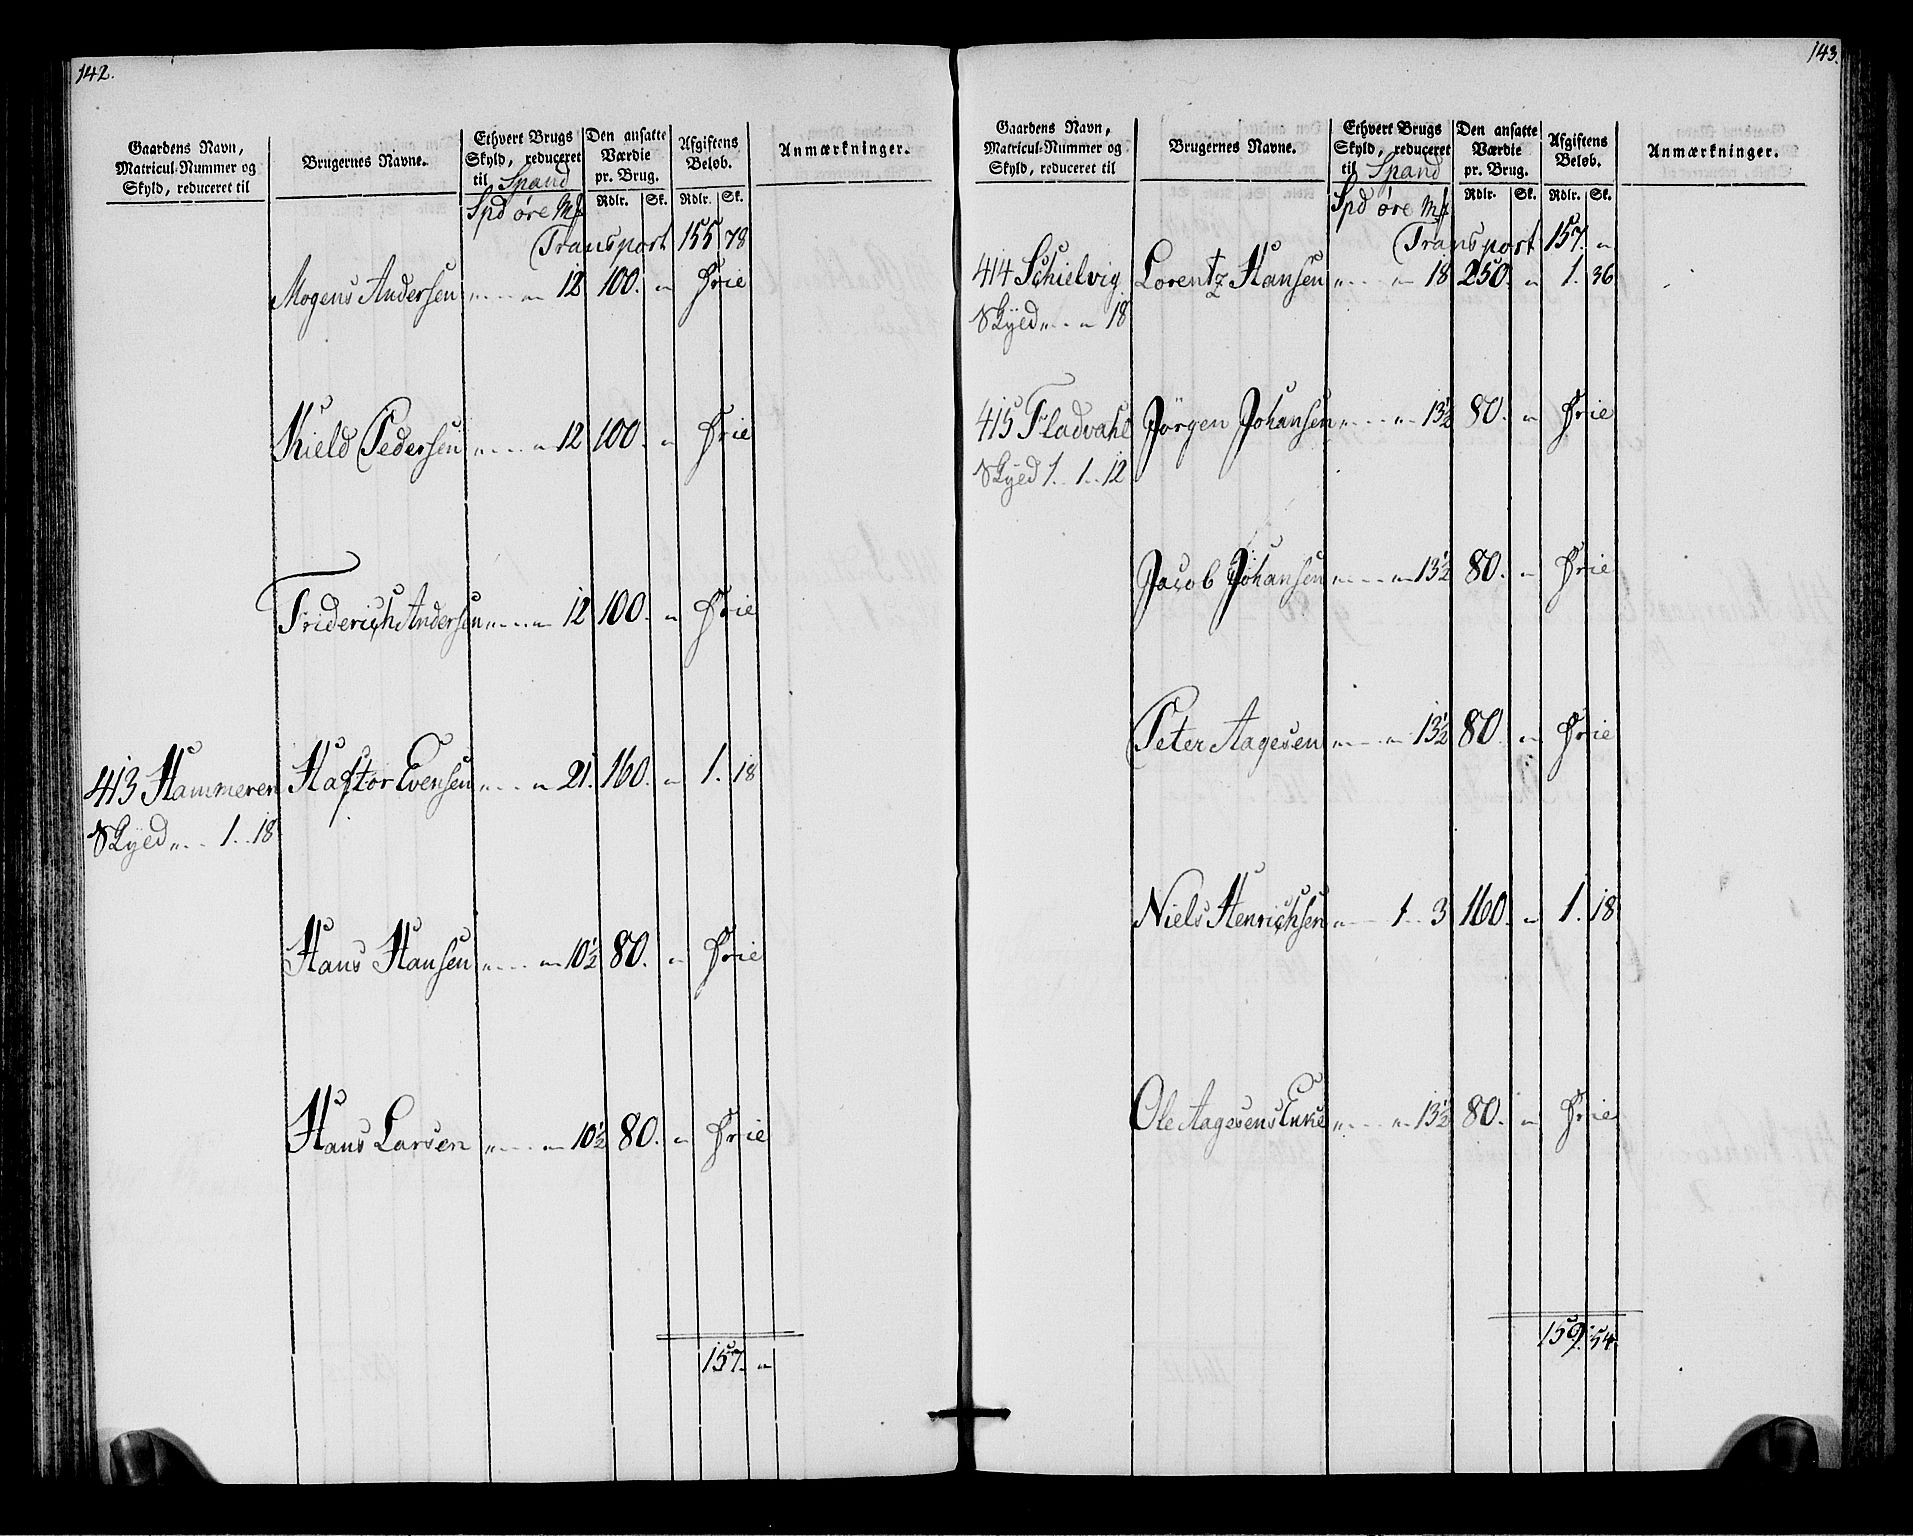 142.
Gaardens Navn, Matricul-Nummer og Skyld, reduceret til | Brugernes Navne. | Ethvert Brugs Skyld, reduceret til Spand | Den ansatte Værdie pr. Brug. | Afgiftens Beløb. | Anmærkninger.
Spd øre Mk | Rdlr. Sk. | Rdlr. Sk.
Transport 155 78
Mogens Andersen „ . „ 12 100. „ Frie
Kield Pedersen „ . „ 12 100. „ Frie
Friderich Andersen „ . „ 12 100. „ Frie
413 Hammeren Haftor Evensen „ . „ 21. 160. „ 1. 18
Skyld „ . 1 . 18
Hans Hansen „ . „ 10½ 80. „ Frie
Hans Larsen „ . „ 10½ 80. „ Frie
157. „
143.
Gaardens Navn, Matricul-Nummer og Skyld, reduceret til | Brugernes Navne. | Ethvert Brugs Skyld, reduceret til Spand | Den ansatte Værdie pr. Brug. | Afgiftens Beløb. | Anmærkninger.
Spd øre Mk | Rdlr. Sk. | Rdlr. Sk.
Transport 157. „
414 Schielvig Lorentz Hansen „ . „ 18 250. „ 1. 36
Skyld „ . „ 18
415 Fladvahl Jørgen Johansen „ . „ 13½ 80. „ Frie
Skyld 1 . 1 . 12
Jacob Johansen „ . „ 13½ 80. „ Frie
Peter Aagesen „ . „ 13½ 80. „ Frie
Niels Henrichsen „ 1 3 160. „ 1. 18
Ole Aagesens Enke „ . „ 13½ 80. „ Frie
159. 54.